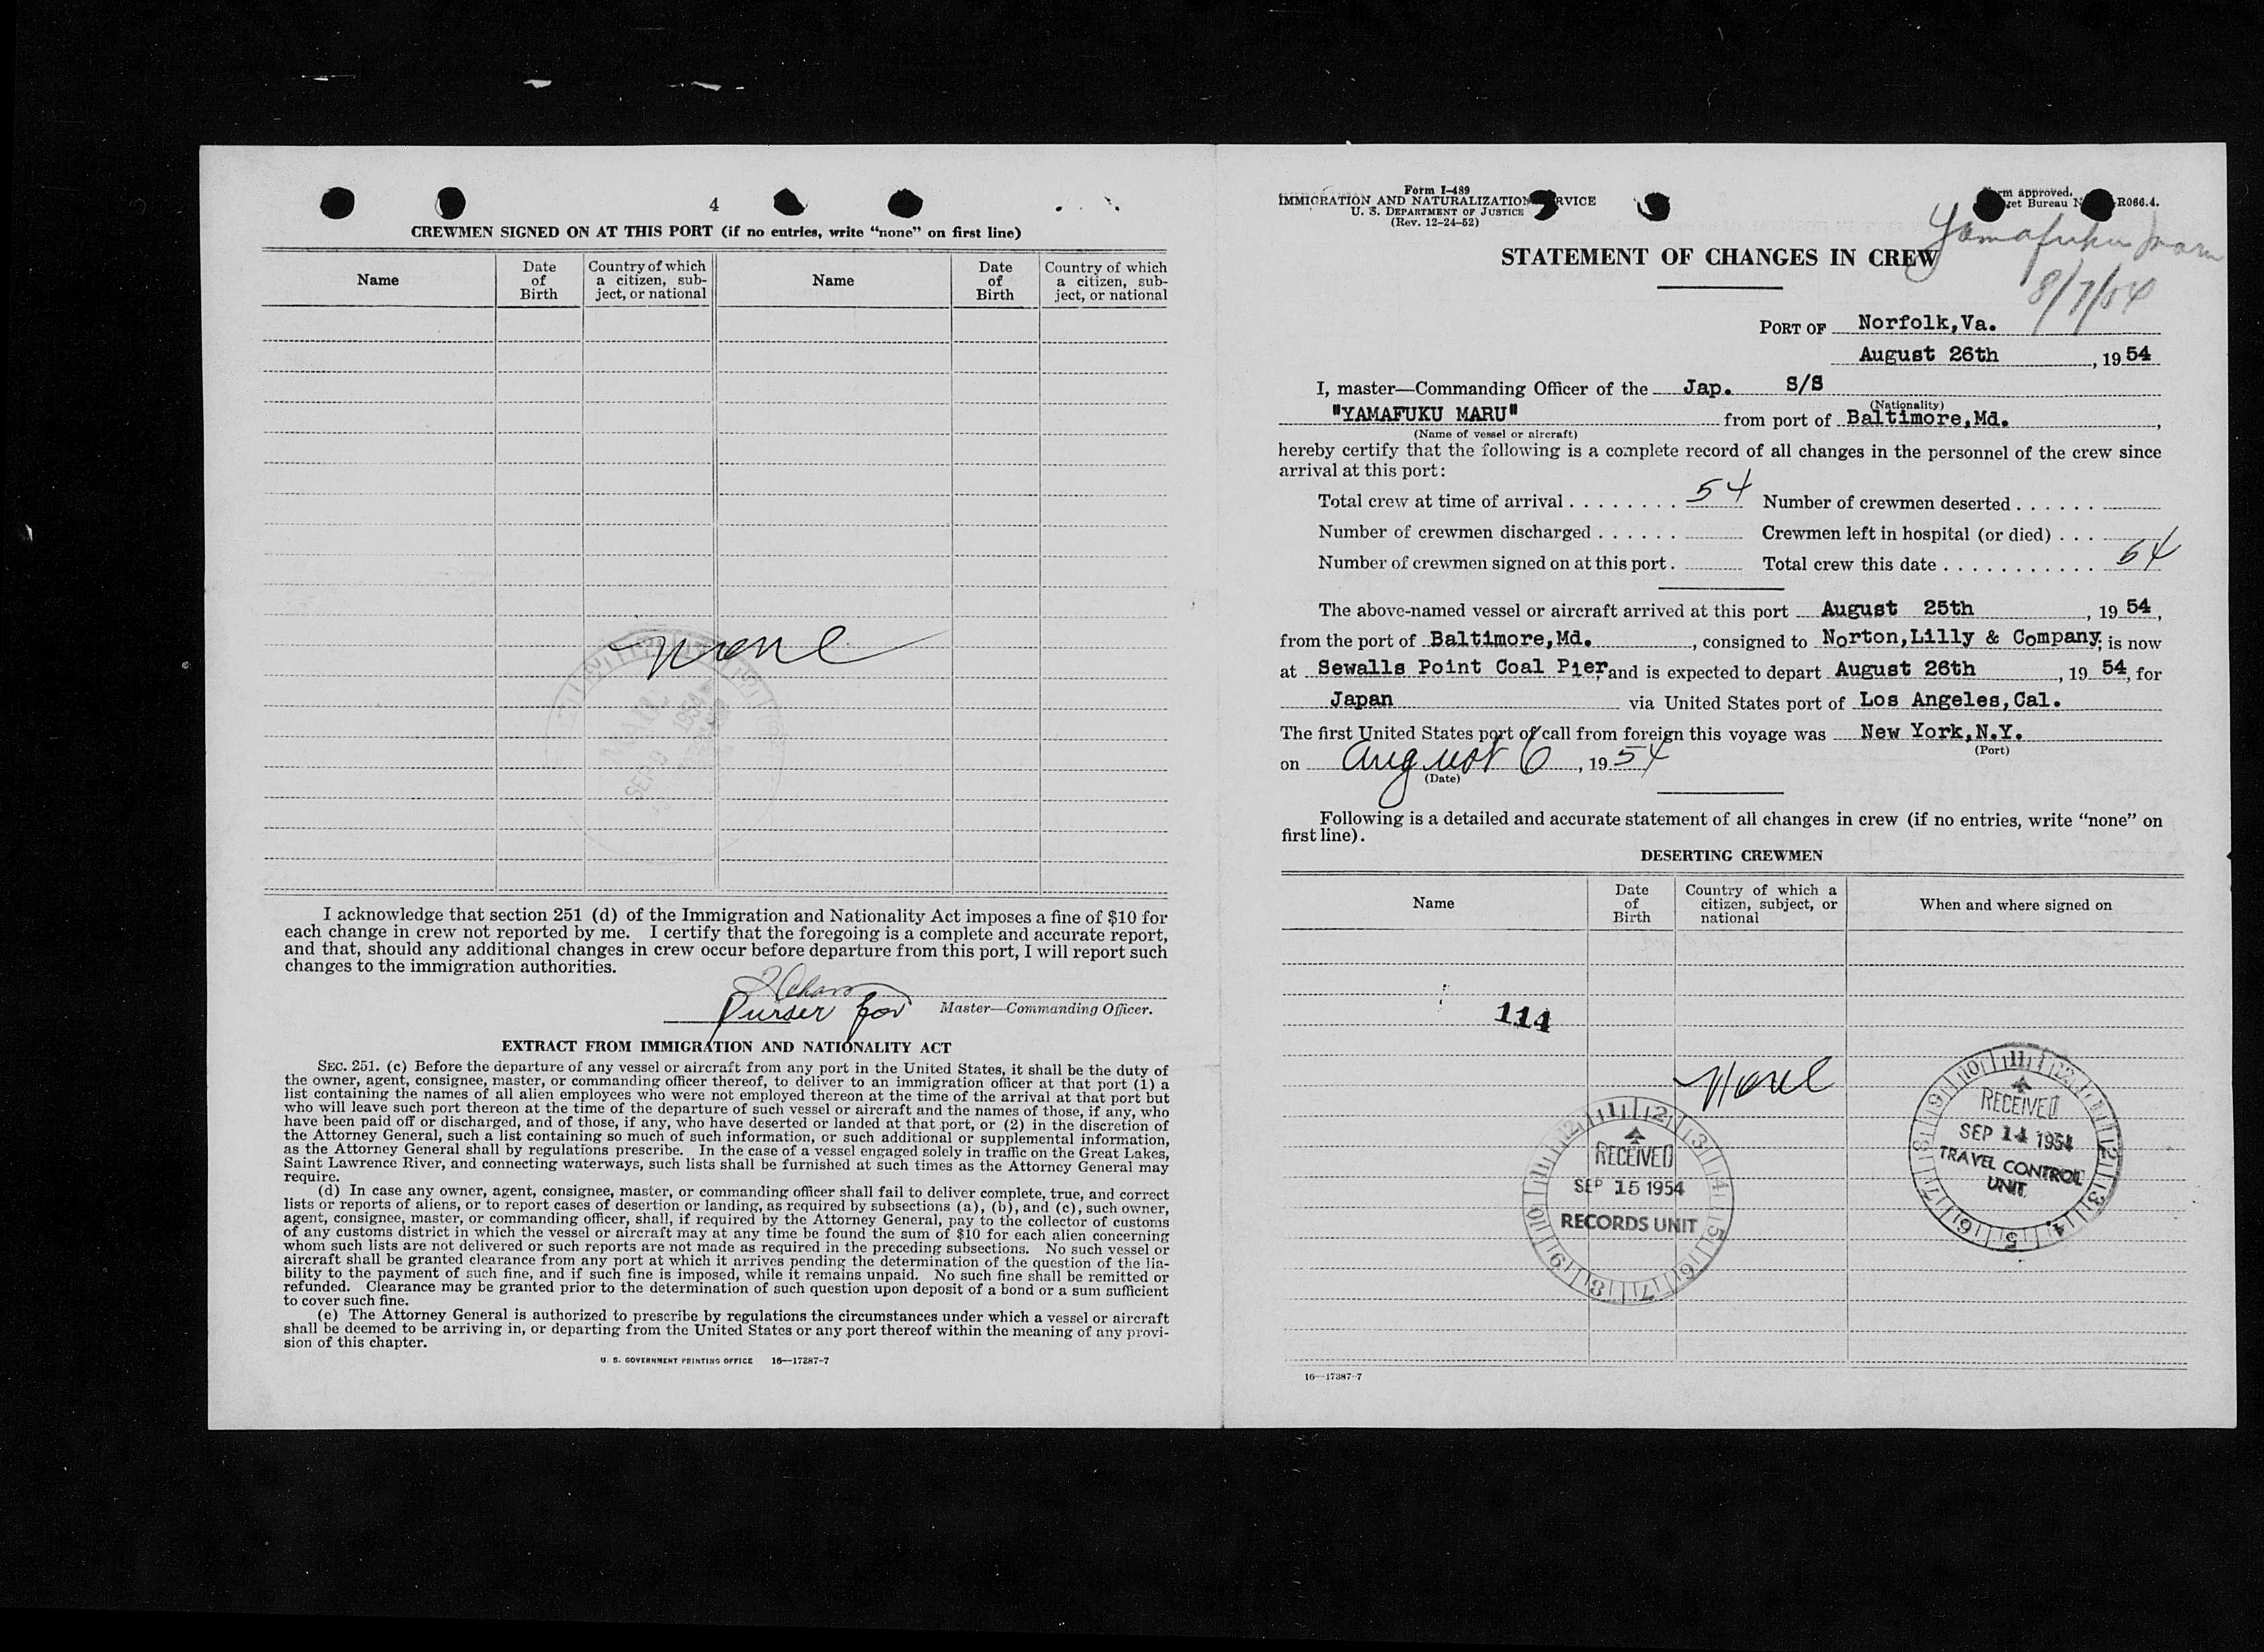 4
CREWMEN SIGNED ON AT THIS PORT (if no entries, write “none” on first line)
Name
Date of Birth
Country of which a citizen, sub-ject, or national
Name
Date of Birth
Country of which a citizen, sub-ject, or national
none
MAIL
SEP 9 1954
I acknowledge that section 251 (d) of the Immigration and Nationality Act imposes a fine of $10 for
each change in crew not reported by me. I certify that the foregoing is a complete and accurate report,
and that, should any additional changes in crew occur before departure from this port, I will report such
changes to the immigration authorities.
Purser for Master—Commanding Officer.
EXTRACT FROM IMMIGRATION AND NATIONALITY ACT
SEC. 251. (c) Before the departure of any vessel or aircraft from any port in the United States, it shall be the duty of
the owner, agent, consignee, master, or commanding officer thereof, to deliver to an immigration officer at that port (1) a
list containing the names of all alien employees who were not employed thereon at the time of the arrival at that port but
who will leave such port thereon at the time of the departure of such vessel or aircraft and the names of those, if any, who
have been paid off or discharged, and of those, if any, who have deserted or landed at that port, or (2) in the discretion of
the Attorney General, such a list containing so much of such information, or such additional or supplemental information,
as the Attorney General shall by regulations prescribe. In the case of a vessel engaged solely in traffic on the Great Lakes,
Saint Lawrence River, and connecting waterways, such lists shall be furnished at such times as the Attorney General may
require.
(d) In case any owner, agent, consignee, master, or commanding officer shall fail to deliver complete, true, and correct
lists or reports of aliens, or to report cases of desertion or landing, as required by subsections (a), (b), and (c), such owner,
agent, consignee, master, or commanding officer, shall, if required by the Attorney General, pay to the collector of customs
of any customs district in which the vessel or aircraft may at any time be found the sum of $10 for each alien concerning
whom such lists are not delivered or such reports are not made as required in the preceding subsections. No such vessel or
aircraft shall be granted clearance from any port at which it arrives pending the determination of the question of the lia-
bility to the payment of such fine, and if such fine is imposed, while it remains unpaid. No such fine shall be remitted or
refunded. Clearance may be granted prior to the determination of such question upon deposit of a bond or a sum sufficient
to cover such fine.
(e) The Attorney General is authorized to prescribe by regulations the circumstances under which a vessel or aircraft
shall be deemed to be arriving in, or departing from the United States or any port thereof within the meaning of any provi-
sion of this chapter.
U. S. GOVERNMENT PRINTING OFFICE 16—17387-7
Form I-489
IMMIGRATION AND NATURALIZATION SERVICE
U. S. DEPARTMENT OF JUSTICE
(Rev. 12-24-52)
Form approved.
Budget Bureau R066.4.
Yamafuku Maru
8/7/54
STATEMENT OF CHANGES IN CREW
PORT OF Norfolk,Va.
August 26th, 1954
I, master—Commanding Officer of the Jap. S/S
(Nationality)
"YAMAFUKU MARU" from port of Baltimore,Md.,
(Name of vessel or aircraft)
hereby certify that the following is a complete record of all changes in the personnel of the crew since
arrival at this port:
Total crew at time of arrival . . . . . . . . 54 Number of crewmen deserted . . . . . .
Number of crewmen discharged . . . . . . Crewmen left in hospital (or died) . . .
Number of crewmen signed on at this port . Total crew this date . . . . . . . . . . . . 54
The above-named vessel or aircraft arrived at this port August 25th, 1954,
from the port of Baltimore,Md., consigned to Norton,Lilly & Company, is now
at Sewalls Point Coal Pier, and is expected to depart August 26th, 1954, for
Japan via United States port of Los Angeles,Cal.
The first United States port of call from foreign this voyage was New York,N.Y.
(Port)
on August 6, 1954
(Date)
Following is a detailed and accurate statement of all changes in crew (if no entries, write “none” on
first line).
DESERTING CREWMEN
Name
Date of Birth
Country of which a citizen, subject, or national
When and where signed on
114
None
RECEIVED
SEP 15 1954
RECORDS UNIT
RECEIVED
SEP 14 1954
TRAVEL CONTROL
UNIT
16—17387-7